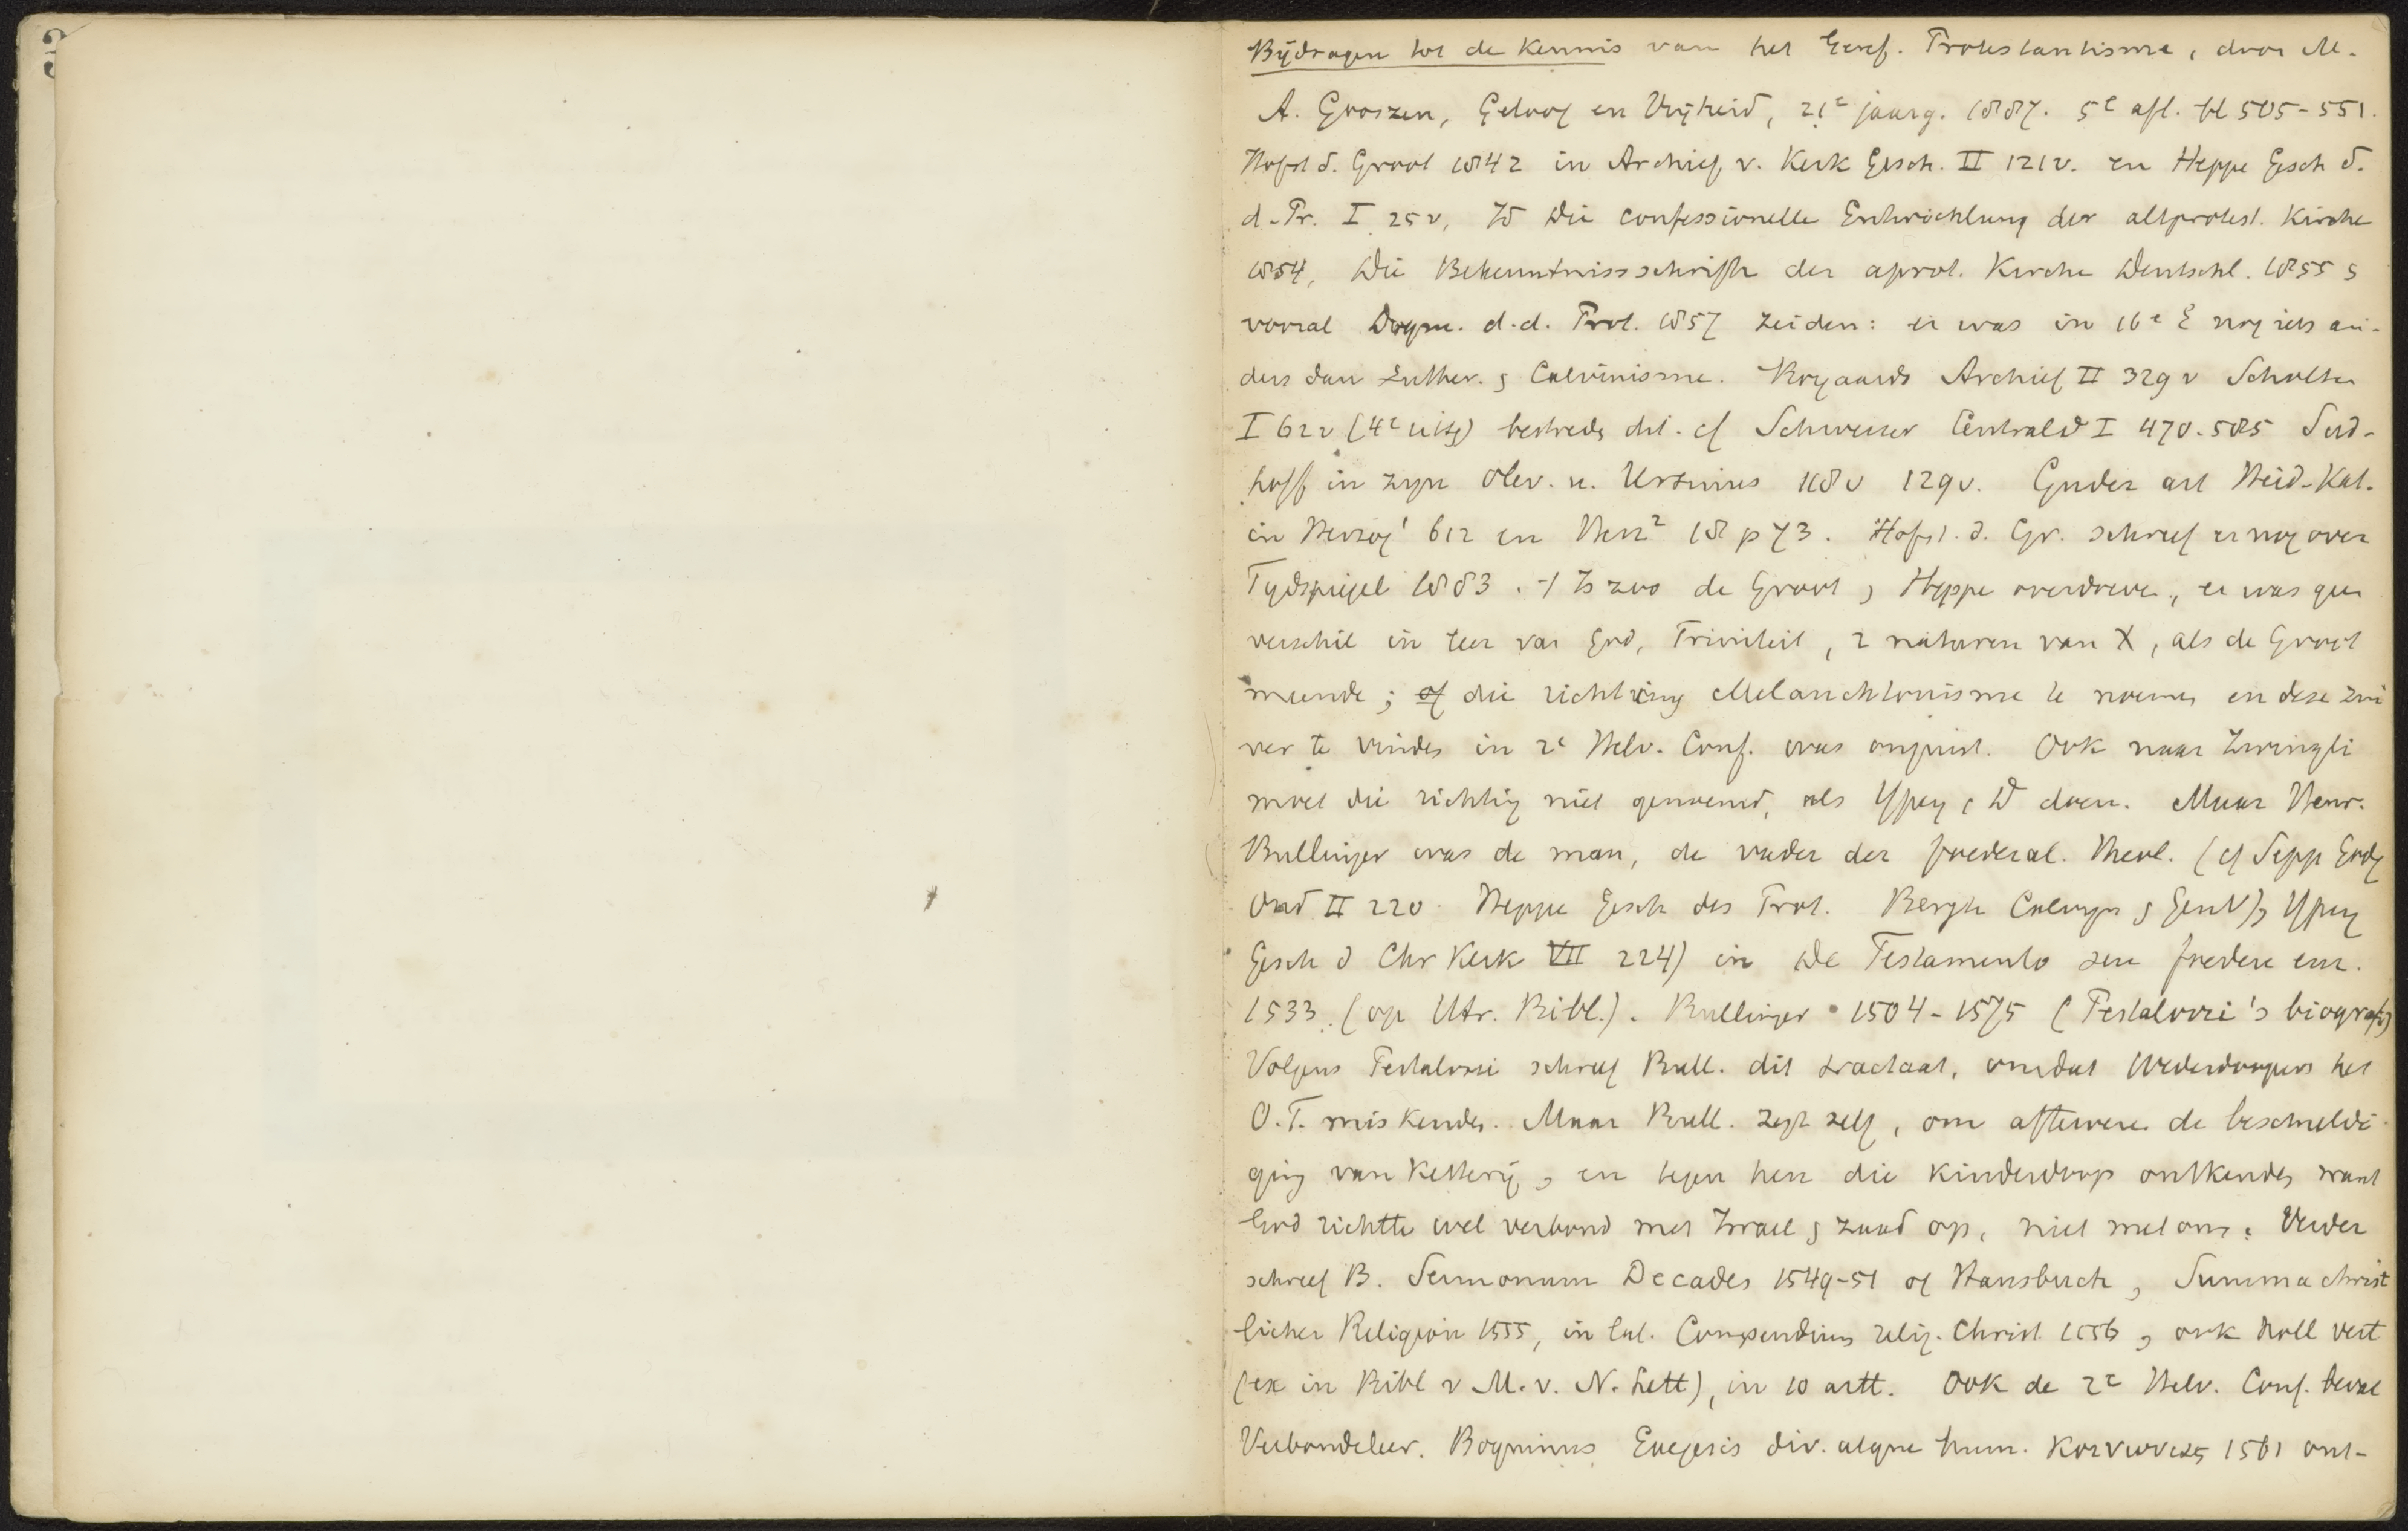 Bijdragen tot de Kennis van het Geref. Protestantisme, door M.
A. Gooszen, Geloof en Vrijheid, 21e jaarg. 1887. 5e afl. bl 505-551.
Hofst d. Groot 1842 in Archief v. Kerk Gesch. II 121v. en Heppe Gesch d.
d. Pr. I 25 v, Id Die confessionelle Entwicklung der altprotest. Kirche
1854, Die Bekenntnissschrifte der aprot. Kirche Deutschl. 1855 &
vooral Dogm. d. d. Prot. 1857 zeiden: er was in 16e E nog iets an-
ders dan Luther. & Calvinisme. Royaards Archief II 329 v Scholten
I 62 v (4e uitg) bestreden dit. cf Schweizer Centrald I 470. 585 Sud-
hoff in zijn Olev. u. Ursinus 118 v 129 v. Guder art Heid-Kat.
in Herzog1 612 en Herz2 18 p 73. Hofst. d. Gr. schreef er nog over
Tijdspiegel 1883. Is zoo de Groot & Heppe overdreven, er was geen
verschil in leer van God, Triniteit, 2 naturen van X, als de Groot
meende; of die richting Melanchtonisme te noemen en deze zui
ver te vinden in 2e Helv. Conf. was onjuist. Ook naar Zwingli
moet die richting niet genoemd, als Ypey & D doen. Maar Henr.
Bullinger was de man, de vader der foederal. Theol. (cf Sepp Godg
Ond II 220. Heppe Gesch des Prot. Bergh Calvijn & GenV), Ypey
Gesch d Chr Kerk VII 224) in De Testamento seu foedere enz.
1533. (op Utr. Bibl.). Bullinger 1504-1575 (Pestalozzi's biografie)
Volgens Pestalozzi schreef Bull. dit tractaat, omdat Wederdoopers het
O.T. miskenden. Maar Bull. zegt zelf, om afteweren de beschuldi-
ging van Ketterij, en tegen hen die kinderdoop ontkenden want
God richtte wel verbond met Israel & zaad op, niet met ons. Verder
schreef B. Sermonum Decades 1549-51 of Hausbuch, Summa christ
licher Religion 1555, in lat. Compendium relig. Christ 1556, ook Holl vert
(ex in Bibl v M. v. N. Lett), in 10 artt. Ook de 2e Helv. Conf. bevat
Verbondsleer. Boquinus Exegesis div. atque hum. κοινωνιας 1561 ont-